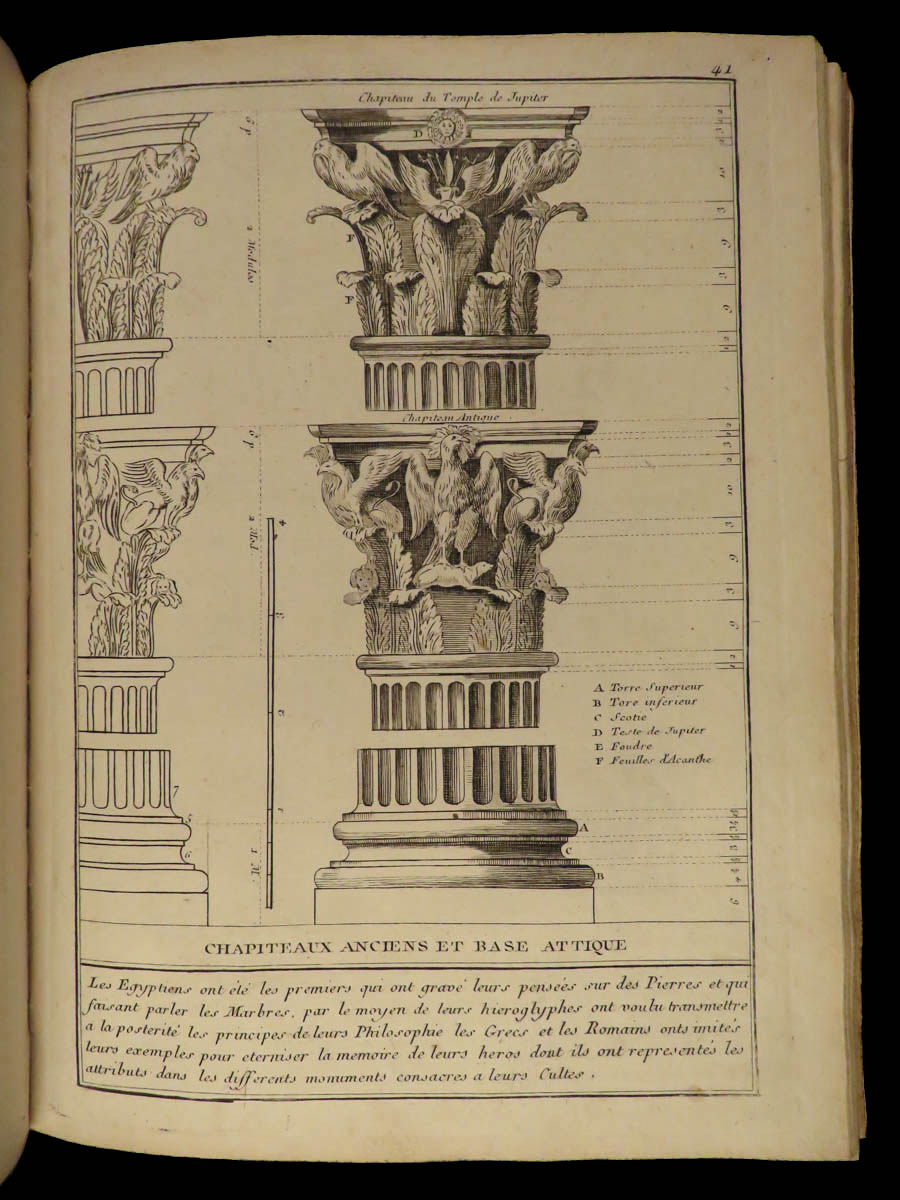 41
Chapiteau du Temple de Jupiter
D
F
F
6 p
2 Modules
Chapiteau Antique
6 p
2 Mod.
4
3
2
1
1 M.
A Torre Superieur
B Tore inferieur
C Scotie
D Teste de Jupiter
E Foudre
F Feuilles d'Acanthe
7
5
6
A
C
B
CHAPITEAUX ANCIENS ET BASE ATTIQUE
Les Egyptiens ont été les premiers qui ont gravé leurs pensées sur des Pierres et qui
faisant parler les Marbres, par le moyen de leurs hieroglyphes ont voulu transmettre
a la posterité les principes de leurs Philosophie les Grecs et les Romains onts imités
leurs exemples pour eterniser la memoire de leurs heros dont ils ont representés les
attributs dans les differents monuments consacres a leurs Cultes.